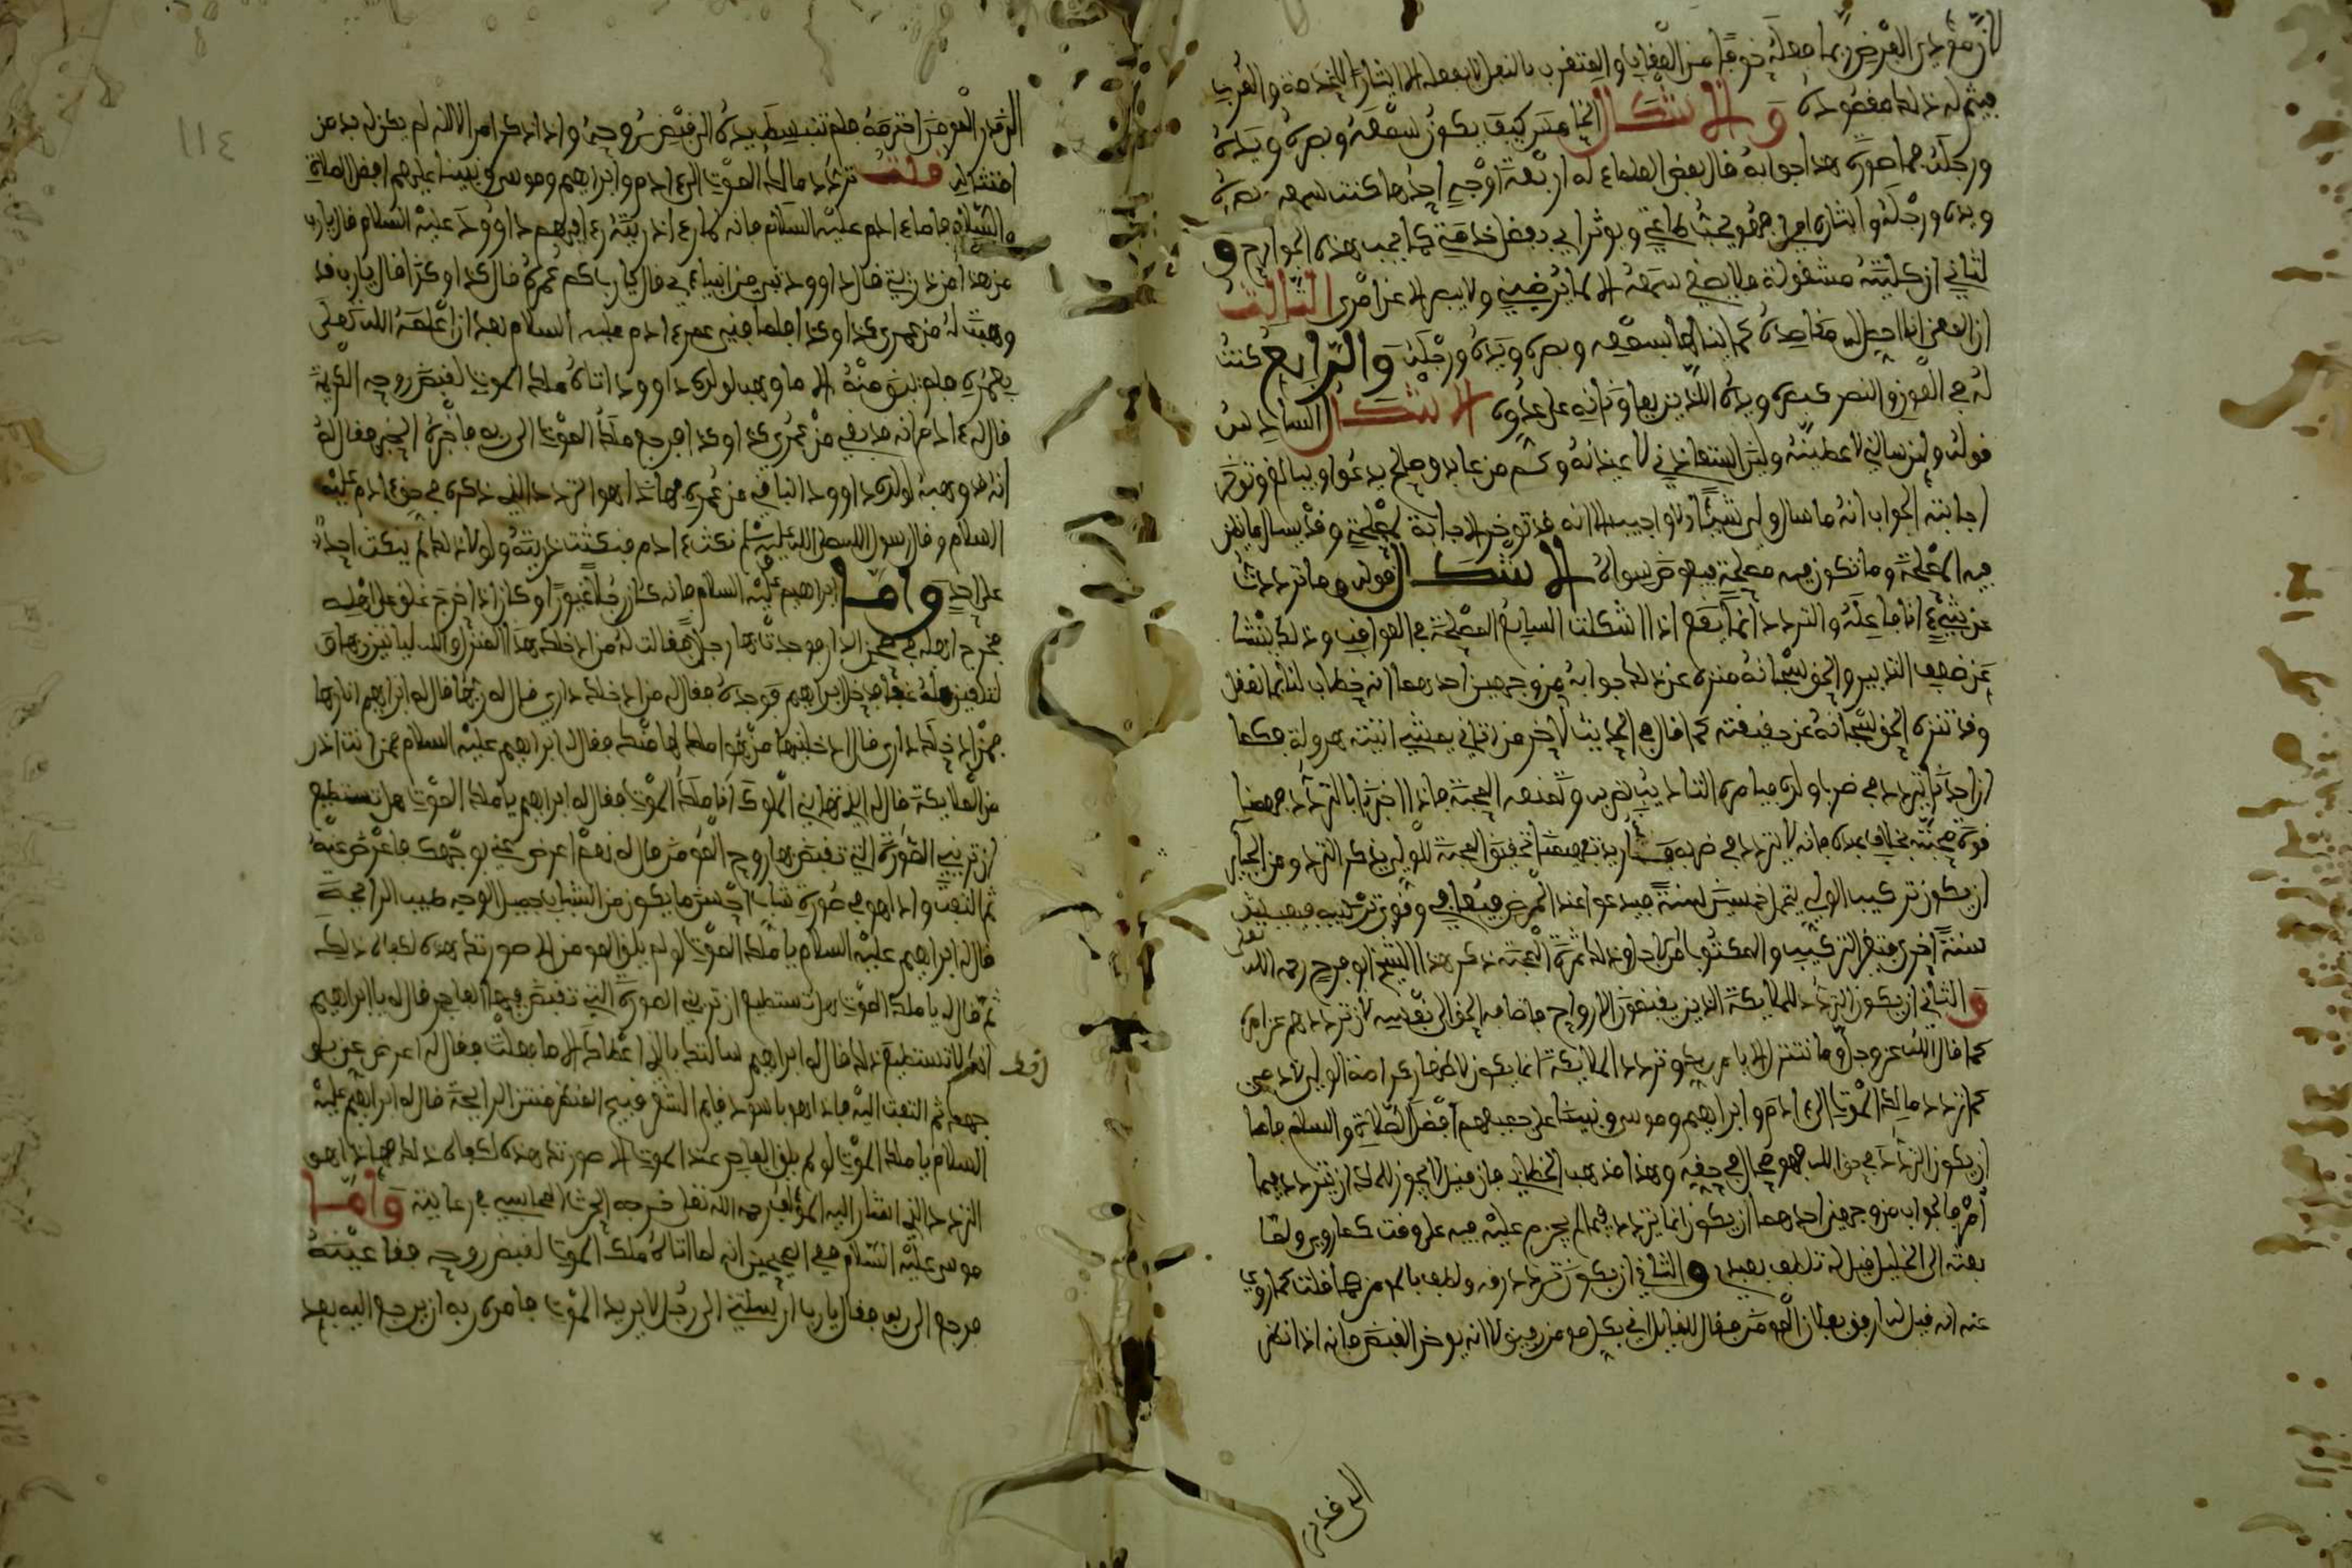 لان مؤدي الفرض ربما فعله خوفا من العقاب والمتقرب بالنفل لا يفعله الا ايثارا للخدمة والقرب
فيثمر له ذلك مقصوده والاشكال الخامس كيف يكون سمعه وبصره ويده
ورجله فما صورة هذا جوابه قال بعض العلماء له اربعة اوجه احدها كنت كسمعه وبصره
ويده ورجله في ايثاره امري فهو يحب طاعتي ويوثر لي خدمتي كما يحب هذه الجوارح و
الثاني ان كليته مشغولة فلا يصغي سمعه الا لما يرضيني ولا يبصر الا عن امري الثالث
ان المعنى اني احصل له مقاصده كما ينالها بسمعه وبصره ويده ورجله والرابع كنت
له في العون والنصر كبصره ويده اللذين يعاونانه على عدوه الاشكال السادس
قوله ولئن سالني لاعطينه ولئن استعاذني لاعيذنه وكم من عابد وصالح يدعوا ويبالغ وتؤخر
اجابته الجواب انه ما سال ولي شيئا الا واجيب الا انه قد توخر الاجابة لمصلحة وقد يسال ما يظن
فيه المصلحة وما تكون فيه مصلحة فيعوض سواه الاشكال قوله وما ترددت
عن شيء انا فاعله والتردد انما يقع اذا اشكلت المصلحة في العواقب وذلك ينشا
عن ضعف التدبير والحق سبحانه منزه عن ذلك جوابه من وجهين احدهما انه خطاب لنا بما نعقل
وقد تنزه الحق سبحانه عن حقيقته كما قال في الحديث الاخر من اتاني يمشي اتيته هرولة فكما
ان احدنا يتردد في ضرب ولده فيامره التاديب بضربه وتمنعه المحبة فاذا اخبرنا بالتردد فهمنا
قوة محبته بخلاف عبده فانه لا يتردد في ضربه فاريد تفهيمنا تحقيق المحبة للولي بذكر التردد ومن الجايز
ان يكون تركيب الولي يحتمل خمسين سنة فيدعوا عند المرض فيعافى وتقوى تركيبه فيعيش
سنة اخرى فتغير التركيب والمكتوب من الاجل وذلك ثمرة المحبة ذكر هذا الشيخ ابو فرج رحمه الله تعلى
والثاني ان يكون التردد للملايكة الذين يقبضون الارواح فاضافه الحق الى نفسه لان ترددهم عن امره
كما قال الله عز وجل وما نتنزل الا بامر ربك وتردد الملايكة انما يكون لاظهار كرامة الولي لادمي
كما تردد ملك الموت الى ءادم وابراهيم وموسى ونبينا على جميعهم افضل الصلاة والسلام فاما
ان يكون التردد في حق الله فهو محال في حقه وهذا مذهب الخطابي فان قيل لا يجوز للملك ان يتردد فيما
امر فالجواب من وجهين احدهما ان يكون انما يتردد فيما لم يجزم عليه فيه على وقت كما روي ولما
بعثه الى الخليل قيل له تلطف بعبدي والثاني ان يكون تردد رفة ولطف بالمومن كما قلت كما روي
عنه انه قيل له ارفق بفلان المومن فقال للقايل اني بكل مومن رفيق لا انه يوخر القبض فانه اذا نظر
الى قدر
١١٤
الى قدر المومن احترمه فلم تنبسط يده الى قبض روحه واذا ذكر امر الاله لم يكن له بد من
امتثاله قلت تردد ملك الموت الى ءادم وابراهيم وموسى ونبينا عليهم افضل الصلاة
والسلام فاما ءادم عليه السلام فانه لما رءا ذريته رءا فيهم داوود عليه السلام قال يارب
من هذا من ذريتي قال داوود نبي من انبياءي قال يارب كم عمره قال كذا وكذا قال يارب قد
وهبت له من عمري كذا وكذا فلما فني عمر ءادم عليه السلام بعد ان اعلمه الله تعلى
بعمره فلم يبق منه الا ما وهب لولده داوود اتاه ملك الموت لقبض روحه الكريمة
قال له ءادم انه قد بقي من عمري كذا وكذا فرجع ملك الموت الى ربه فاخبره الخبر فقال له
انه قد وهبه لولده داوود الباقي من عمره فهاذا هو التردد الذي ذكره في حق ءادم عليه
السلام وقال رسول الله صلى الله عليه وسلم نكث ءادم فنكثت ذريته ولولا ذلك لم ينكث احد
على احد واما ابراهيم عليه السلام فانه كان رجلا غيورا وكان اذا خرج غلق على اهله
فخرج اهله في صحن الدار فوجدت بها رجلا فقالت له من ادخلك هذا المنزل والله لياتين رجل
لتلقين منه عنفا فدخل ابراهيم فوجده فقال له من ادخلك داري قال له ربها قال له ابراهيم انا ربها
فمن ادخلك داري قال ادخلنيها من هو املك لها منك فقال له ابراهيم عليه السلام فمن انت اذن
من الملايكة قال له انا ملك الموت فقال له ابراهيم يا ملك الموت هل تستطيع
ان تريني الصورة التي تقبض بها روح المومن قال له نعم اعرض عني بوجهك فاعرض عنه
ثم التفت واذا هو في صورة شاب احسن ما يكون من الشباب جميل الوجه طيب الرايحة
قال له ابراهيم عليه السلام يا ملك الموت لو لم يلق المومن الا صورتك هذه لكفاه ذلك
ثم قال له يا ملك الموت هل تستطيع ان تريني الصورة التي تقبض فيها الفاجر قال له يا ابراهيم
انك لا تستطيع ذلك قال له ابراهيم سالتك بالذي اعطاك الا ما فعلت فقال له اعرض عني بو
جهك ثم التفت اليه فاذا هو باسود قايم الشعر قبيح المنظر منتن الرايحة قال له ابراهيم عليه
السلام يا ملك الموت لو لم يلق الفاجر عند الموت الا صورتك هذه لكفاه ذلك فهاذا هو
التردد الذي اشار اليه المؤلف رحمه الله نقل خرجه الحرث المحاسبي في رعايته واما
موسى عليه السلام ففي الصحيحين انه لما اتاه ملك الموت لقبض روحه ففقا عينه
فرجع الى ربه فقال يارب ارسلتني الى رجل لا يريد الموت فامره ربه ان يرجع اليه بعد